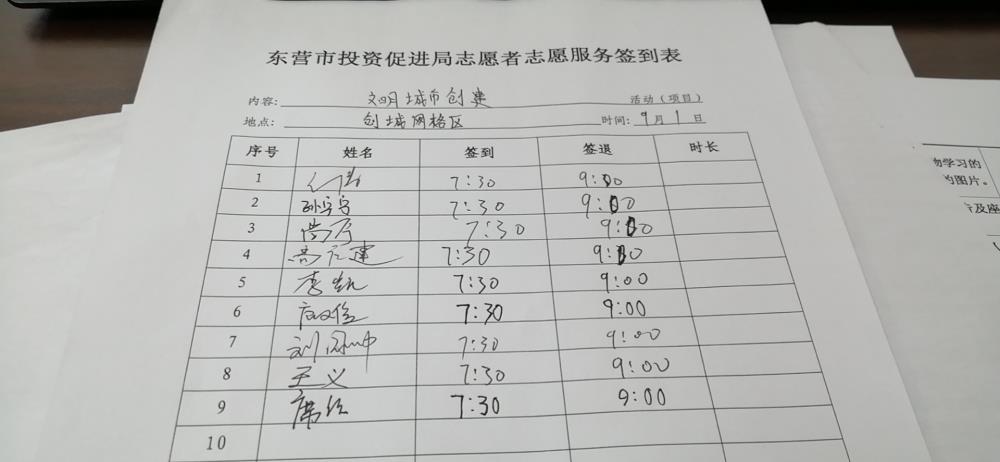 东营市投资促进局志愿者志愿服务签到表
内容: 文明城市创建 活动（项目）
地点: 创城网格区 时间: 9月1日
序号 姓名 签到 签退 时长
1 7:30 9:00
2 孙宇宇 7:30 9:00
3 7:30 9:00
4 7:30 9:00
5 李凯 7:30 9:00
6 7:30 9:00
7 7:30 9:00
8 王义 7:30 9:00
9 7:30 9:00
10
物学习的
的图片。
及座